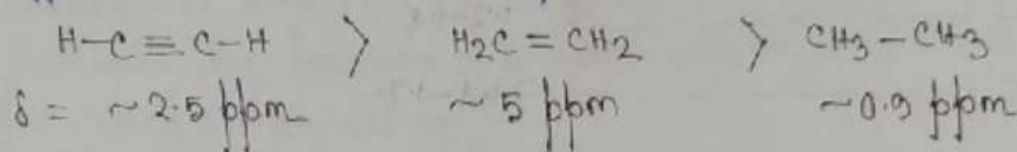 H-C≡C-H > H2C=CH2 > CH3-CH3
δ = ~2.5 ppm ~5 ppm ~0.9 ppm